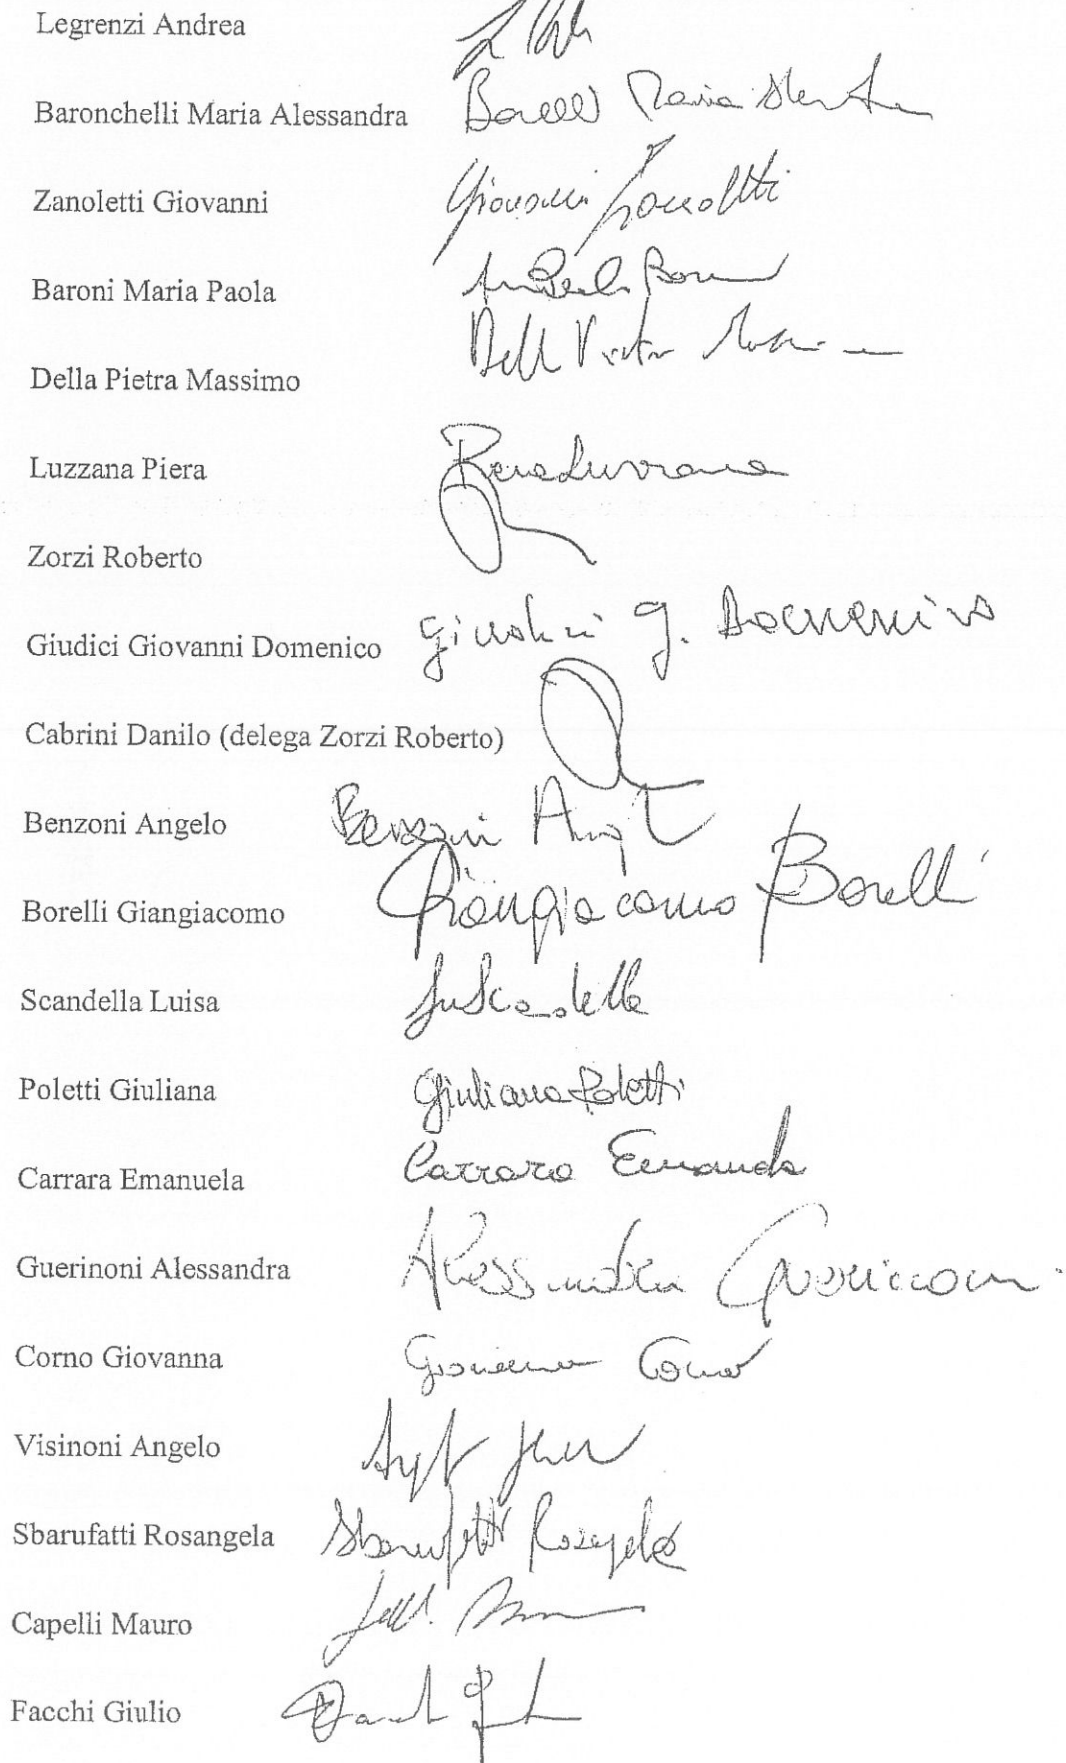 Legrenzi Andrea
Baronchelli Maria Alessandra Maria
Zanoletti Giovanni Giovanni Zanoletti
Baroni Maria Paola
Della Pietra Massimo
Luzzana Piera Piera Luzzana
Zorzi Roberto
Giudici Giovanni Domenico Giudici G. Domenico
Cabrini Danilo (delega Zorzi Roberto)
Benzoni Angelo Benzoni Angelo
Borelli Giangiacomo Giangiacomo Borelli
Scandella Luisa
Poletti Giuliana Giuliana Poletti
Carrara Emanuela Carrara Emanuela
Guerinoni Alessandra Alessandra Guerinoni
Corno Giovanna Giovanna Corno
Visinoni Angelo
Sbarufatti Rosangela Sbarufatti Rosangela
Capelli Mauro
Facchi Giulio